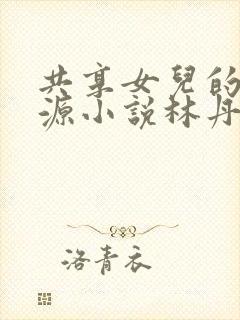 共享女兒的
源小說林丹
洛青衣